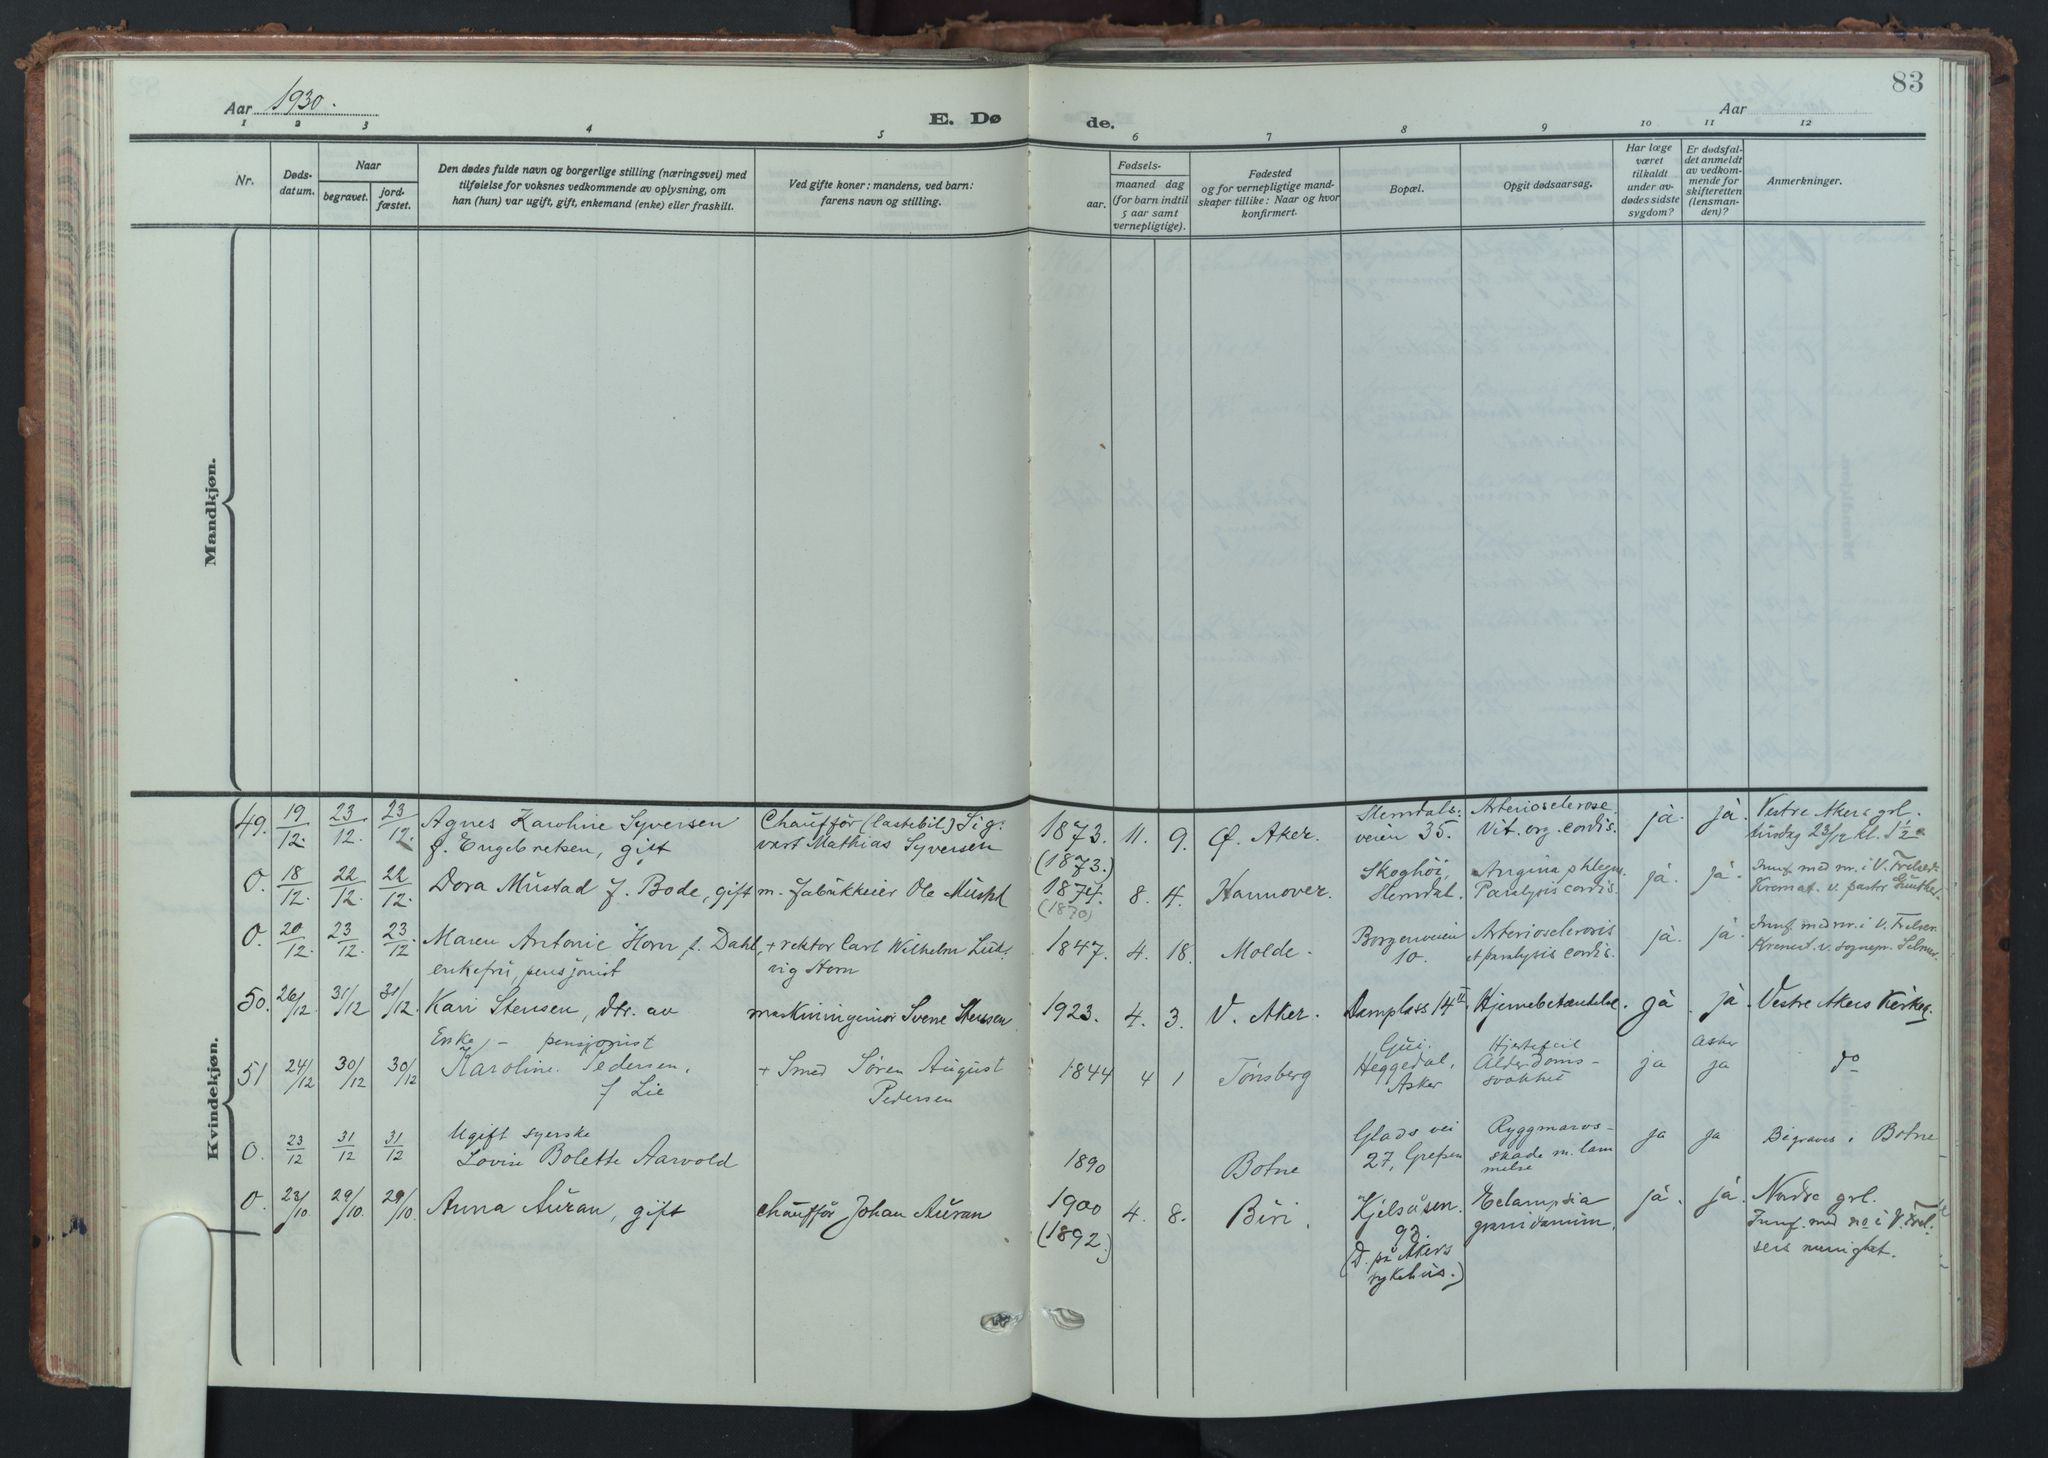 Aar 1930.
E. Døde.
83
Aar
1 2 3 4 5 6 7 8 9 10 11 12
Nr.
Døds-
datum.
Naar
begravet.
jord-
fæstet.
Den dødes fulde navn og borgerlige stilling (næringsvei) med
tilføielse for voksnes vedkommende av oplysning, om
han (hun) var ugift, gift, enkemand (enke) eller fraskilt.
Ved gifte koner: mandens, ved barn:
farens navn og stilling.
Fødsels-
aar.
maaned dag
(for barn indtil
5 aar samt
vernepligtige).
Fødested
og for vernepligtige mand-
skaper tillike: Naar og hvor
konfirmert.
Bopæl.
Opgit dødsaarsag.
Har læge
været
tilkaldt
under av-
dødes sidste
sygdom?
Er dødsfal-
det anmeldt
av vedkom-
mende for
skifteretten
(lensman-
den)?
Anmerkninger.
Mandkjøn.
Kvindekjøn.
49. 19/12. 23/12. 23/12.
Agnes Karoline Syversen
f. Engebretsen, gift
Chauffør (lastebil) Sig-
vart Mathias Syversen
1873. 11. 9.
(1873.)
Ø. Aker.
Slemdals-
veien 35.
Arteriosclerose.
Vit. org. cordis.
ja. ja.
Vestre Akers grl.
tirsdag 23/12 kl. 1½
0. 18/12. 22/12. 22/12.
Dora Mustad f. Bode, gift
m. fabrikkeier Ole Mustad
1874. 8. 4.
(1870)
Hannover.
Skoghöi,
Slemdal.
Angina phlegm.
Paralysis cordis.
ja. ja.
Innf. med nr. i V. Frelsers
Kremat. v. pastor Günther
0. 20/12. 23/12. 23/12.
Maren Antonie Horn f. Dahl,
enkefru, pensjonist
+ rektor Carl Wilhelm Lud-
vig Horn
1847. 4. 18.
Molde.
Borgenveien
10.
Arteriosclerosis
et paralysis cordis.
ja. ja.
Innf. med nr. i V. Frelser.
Kremat. v. sognepr. Selmer.
50. 26/12 31/12 31/12.
Kari Stensen, dtr. av
maskiningeniør Sverre Stensen
1923. 4. 3.
V. Aker.
Damplass 14 II
Hjernebetændelse.
ja. ja.
Vestre Akers Kirkeg.
51 24/12 30/12 30/12
Enke - pensjonist
Karoline Pedersen,
f Lie
+ Smed Søren August
Pedersen
1844 4 1
Tønsberg
Heggedal,
Asker
Hjertefeil
Alderdoms-
svakhet
ja
Asker
ja
do
0. 23/12 31/12 31/12
Ugift syerske
Lovise Bolette Aarvold
1890
Botne
Glads vei
27, Grefsen
Ryggmarvs-
skade m. lam
melse
ja ja
Begraves i Botne
0. 23/10 29/10. 29/10.
Anna Auran, gift
chauffør Johan Auran
1900 4. 8.
(1892.)
Biri.
Kjelsåsen.
93.
(D. på Akers
sykehus.)
Eclampsia
gravidarum.
ja. ja.
Nordre grl.
Innf. med no i V. Frel-
sers menighet.